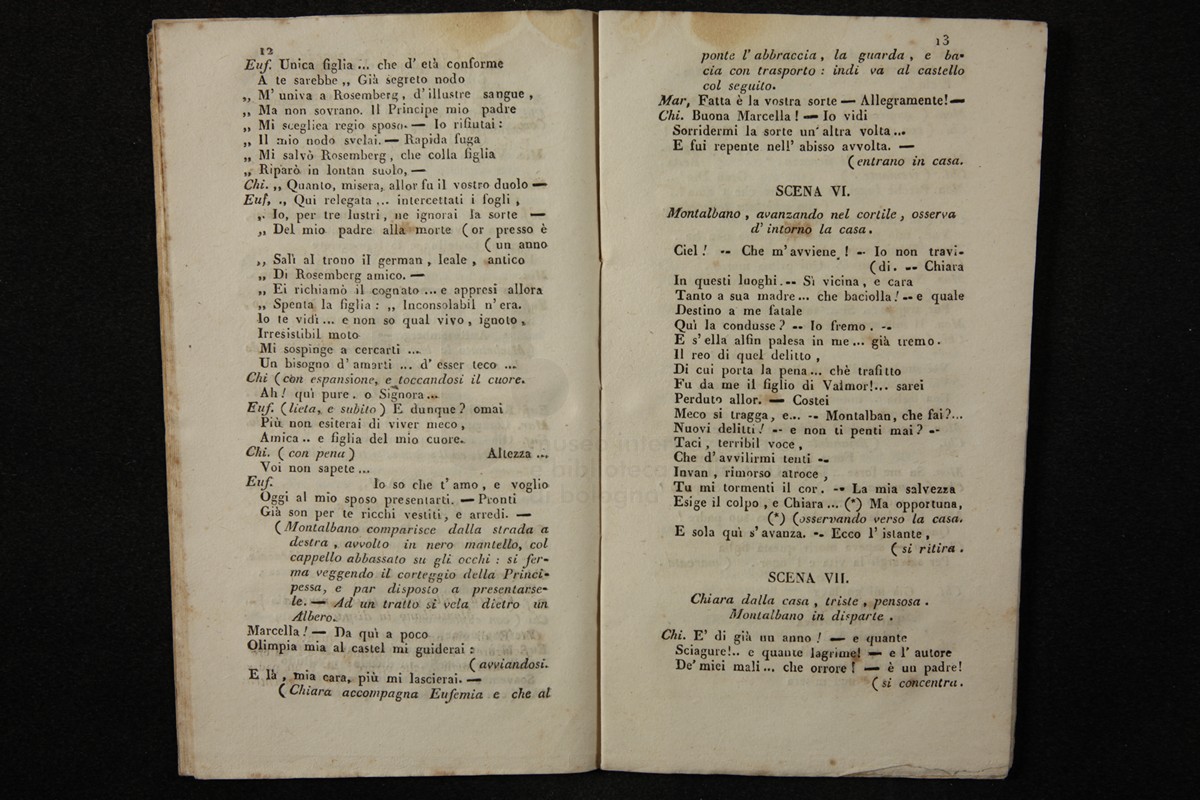 12
Euf. Unica figlia ... che d' età conforme
A te sarebbe ,, Già segreto nodo
,, M' univa a Rosemberg , d' illustre sangue ,
,, Ma non sovrano. Il Principe mio padre
,, Mi scegliea regio sposo. — Io rifiutai :
,, Il mio nodo svelai. — Rapida fuga
,, Mi salvò Rosemberg, che colla figlia
,, Riparò in lontan suolo, —
Chi. ,, Quanto, misera, allor fu il vostro duolo —
Euf, ., Qui relegata ... intercettati i fogli ,
,. Io, per tre lustri, ne ignorai la sorte —
,, Del mio padre alla morte ( or presso è
( un anno
,, Salì al trono il german , leale , antico
,, Di Rosemberg amico. —
,, Ei richiamò il cognato ... e appresi allora
,, Spenta la figlia : ,, Inconsolabil n' era.
Io te vidi ... e non so qual vivo , ignoto ,
Irresistibil moto
Mi sospinge a cercarti ...
Un bisogno d' amarti ... d' esser teco ...
Chi ( con espansione, e toccandosi il cuore.
Ah ! quì pure . o Signora ...
Euf. ( lieta, e subito ) E dunque ? omai
Più non esiterai di viver meco ,
Amica .. e figlia del mio cuore.
Chi. ( con pena ) Altezza ...
Voi non sapete ...
Euf. Io so che t' amo , e voglio
Oggi al mio sposo presentarti. — Pronti
Già son per te ricchi vestiti, e arredi. —
( Montalbano comparisce dalla strada a
destra , avvolto in nero mantello, col
cappello abbassato su gli occhi : si fer-
ma veggendo il corteggio della Princi-
pessa, e par disposto a presentarse-
le. — Ad un tratto si vela dietro un
Albero.
Marcella ! — Da quì a poco
Olimpia mia al castel mi guiderai :
( avviandosi.
E là , mia cara, più mi lascierai. —
( Chiara accompagna Eufemia e che al
13
ponte l' abbraccia , la guarda , e ba-
cia con trasporto : indi va al castello
col seguito.
Mar, Fatta è la vostra sorte — Allegramente! —
Chi. Buona Marcella ! — Io vidi
Sorridermi la sorte un' altra volta ...
E fui repente nell' abisso avvolta. —
( entrano in casa.
SCENA VI.
Montalbano , avanzando nel cortile , osserva
d' intorno la casa .
Ciel ! -- Che m' avviene ! -- Io non travi-
( di. -- Chiara
In questi luoghi. -- Sì vicina , e cara
Tanto a sua madre ... che baciolla ! -- e quale
Destino a me fatale
Quì la condusse ? -- Io fremo . --
E s' ella alfin palesa in me ... già tremo .
Il reo di quel delitto ,
Di cui porta la pena ... chè trafitto
Fu da me il figlio di Valmor! ... sarei
Perduto allor. — Costei
Meco si tragga, e... -- Montalban, che fai ?...
Nuovi delitti ! -- e non ti penti mai ? --
Taci , terribil voce ,
Che d' avvilirmi tenti --
Invan , rimorso atroce ,
Tu mi tormenti il cor . -- La mia salvezza
Esige il colpo , e Chiara ... (*) Ma opportuna,
(*) (osservando verso la casa.
E sola quì s' avanza. -- Ecco l' istante ,
( si ritira .
SCENA VII.
Chiara dalla casa , triste , pensosa .
Montalbano in disparte .
Chi. E' di già un anno ! — e quante
Sciagure!.. e quante lagrime! — e l' autore
De' miei mali ... che orrore ! — è un padre!
( si concentra .